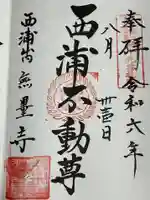 奉拝
令和六年
八月
卅壱日
西浦不動尊
西浦山無量寺